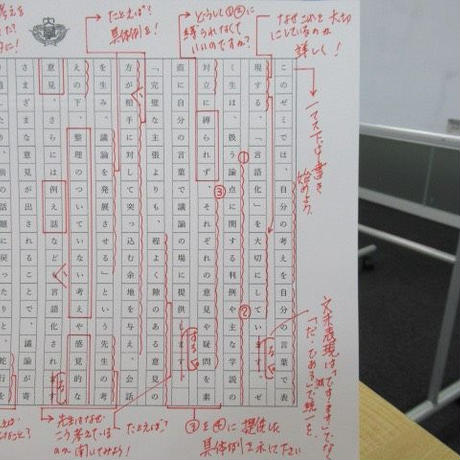 なぜこれを大切
にしているのか
詳しく!
どうして①②に
縛られなくて
いいのですか?
たとえば?
具体例を!
考えを
一マス空けて書き
始めよう。
このゼミでは、自分の考えを自分の言葉で表
現する、「言語化」を大切にしています。ゼ
ミ生は、扱う論点に関する判例や主な学説の
対立に縛られず、それぞれの意見や疑問を素
直に自分の言葉で議論の場に提供します。
「完璧な主張よりも、程よく隙のある意見の
方が相手に対して突っ込む余地を与え、会話
を生み、議論を発展させる」という先生の考
えの下、整理のついていない考えや感覚的な
意見、さらには例え話なども言語化されます
さまざまな意見が出されることで、議論が寄
り、前の話題に戻ったり、蛇行を
①
②
③
いる
する
る
文末表現は「です・ます」でなく
「だ・である」で統一を。
③を④に提供した
具体例を示してください
たとえば?
先生はなぜ
こう考えているか
聞いてみよう!